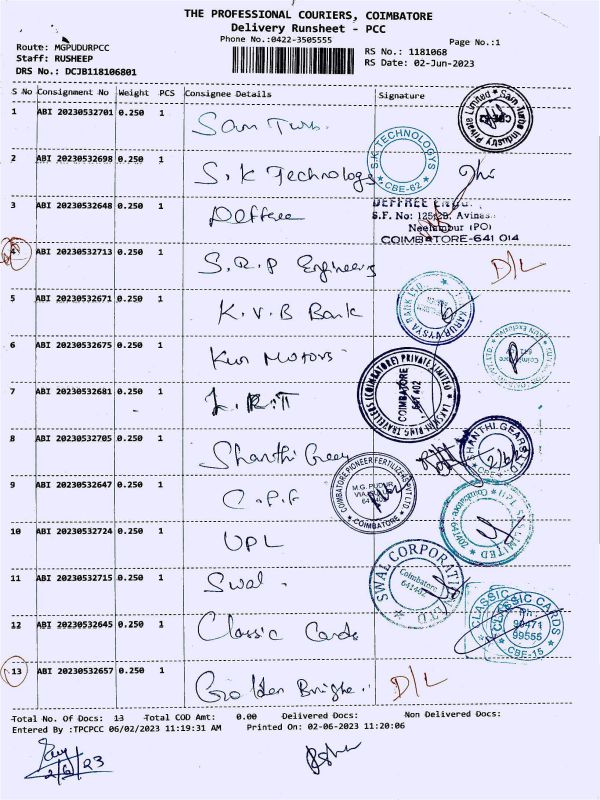 THE PROFESSIONAL COURIERS, COIMBATORE
Delivery Runsheet - PCC
Phone No.:0422-3505555
Page No.:1
Route: MGPUDURPCC
Staff: RUSHEEP
DRS No.: DCJB118106801
RS No.: 1181068
RS Date: 02-Jun-2023
S No Consignment No Weight PCS Consignee Details Signature
1 ABI 20230532701 0.250 1 Sam Turb.
Sam Turbo Industry Private Limited
CBE-62
2 ABI 20230532698 0.250 1 S.K Technology
S.K. TECHNOLOGYS
CBE-62
3 ABI 20230532648 0.250 1 Deffree
DEFFREE
S.F. No: 125/2B, Avinas
Neelambur (PO)
COIMBATORE-641 014
4 ABI 20230532713 0.250 1 S.R.P Engineers D/L
5 ABI 20230532671 0.250 1 K.V.B Bank
KARUR VYSYA BANK LTD.
6 ABI 20230532675 0.250 1 Kun Motors
Coimbatore
7 ABI 20230532681 0.250 1 L.R.T
LAKSHMI RING TRAVELLERS (COIMBATORE) PRIVATE LIMITED
COIMBATORE
641 402
8 ABI 20230532705 0.250 1 Shanthi Gear
SHANTHI GEARS LTD
CBE
2/6/23
9 ABI 20230532647 0.250 1 C.P.F
COIMBATORE PIONEER FERTILIZERS PVT LTD
M.G. PUDUR
COIMBATORE
10 ABI 20230532724 0.250 1 UPL
UPL LIMITED
Coimbatore-641402
11 ABI 20230532715 0.250 1 Swal
SWAL CORPORATION
Coimbatore
641402
12 ABI 20230532645 0.250 1 Classic Cards
CLASSIC CARDS
Ph:
90471
99555
CBE-15
13 ABI 20230532657 0.250 1 Golden Brighe D/L
Total No. Of Docs: 13 Total COD Amt: 0.00 Delivered Docs: Non Delivered Docs:
Entered By :TPCPCC 06/02/2023 11:19:31 AM Printed On: 02-06-2023 11:20:06
2/6/23